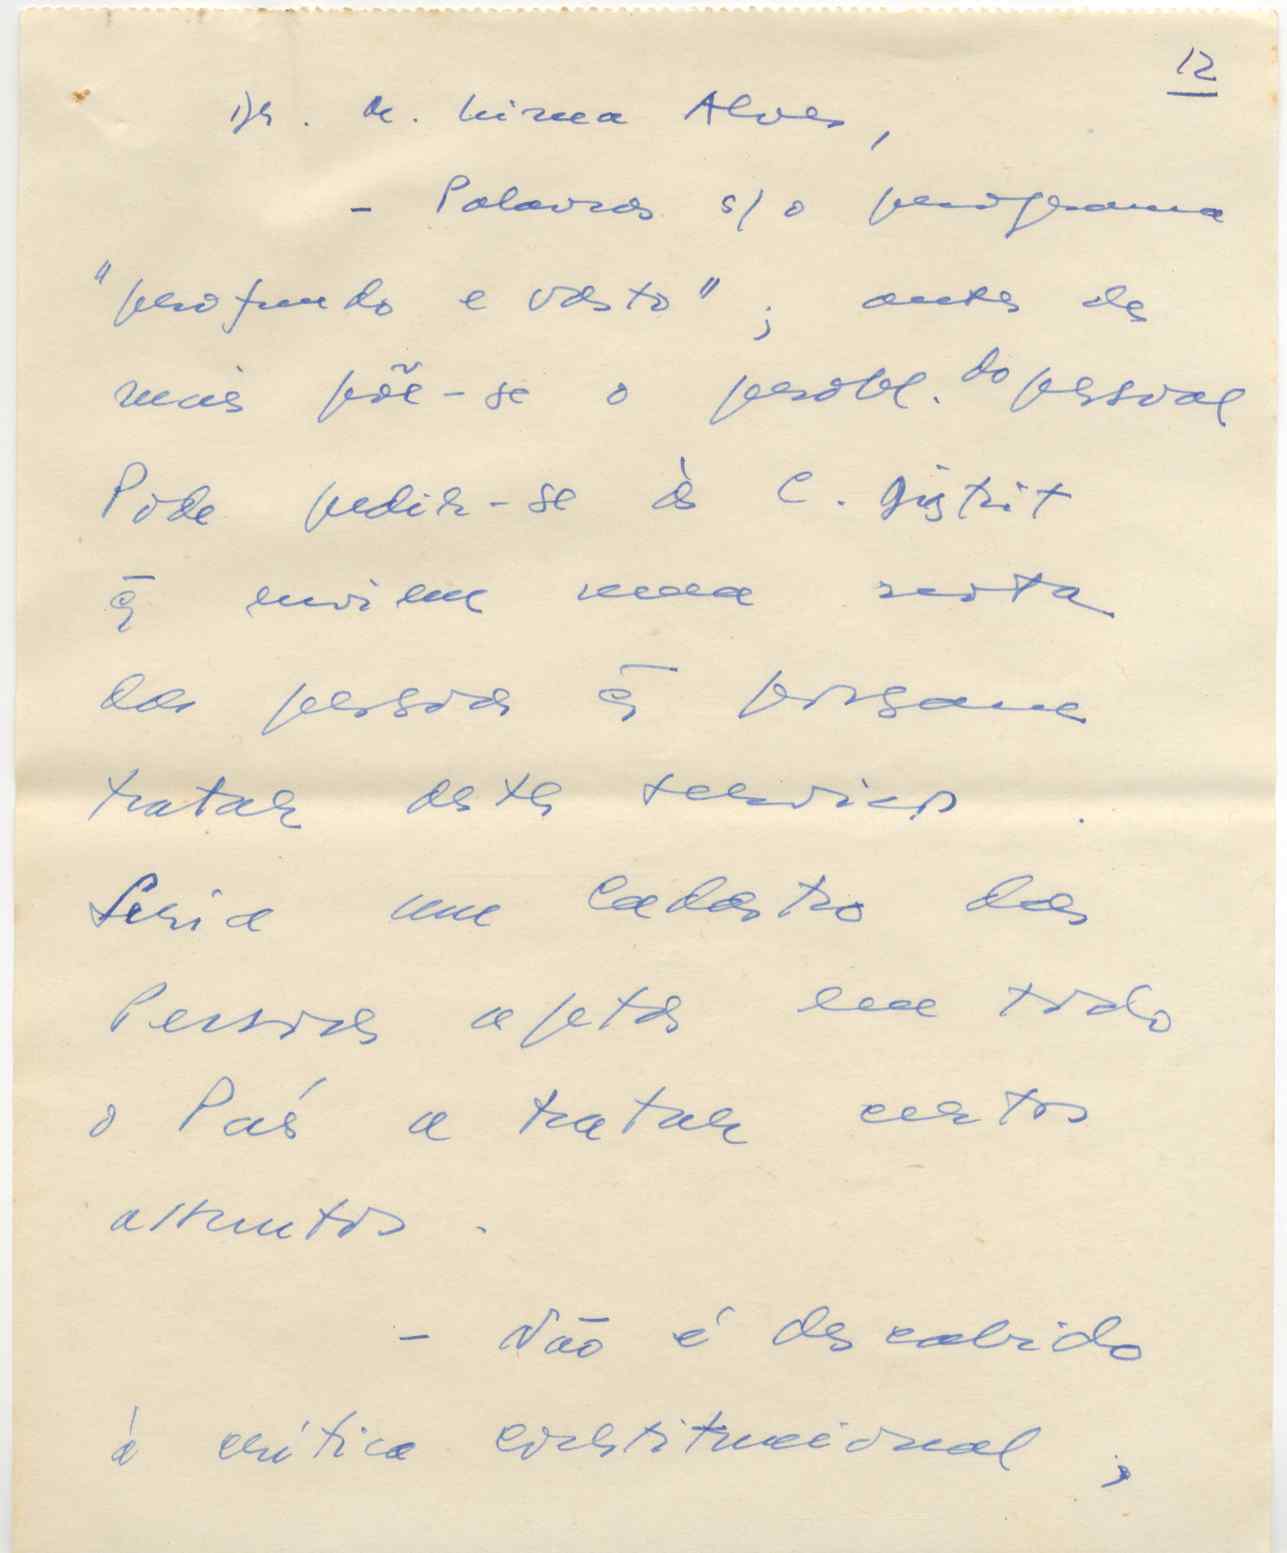 12
Dr. M. Lima Alves,
- Palavras s/ o programa
"profundo e vasto"; antes de
mais põe-se o probl. do pessoal
Pode pedir-se às C. Distrit
q̄ enviem uma nota
das pessoas q̄ possam
tratar destes serviços.
Seria um cadastro das
Pessoas aptas em todo
o País a tratar certos
assuntos.
- Não é descabido
a crítica constitucional,